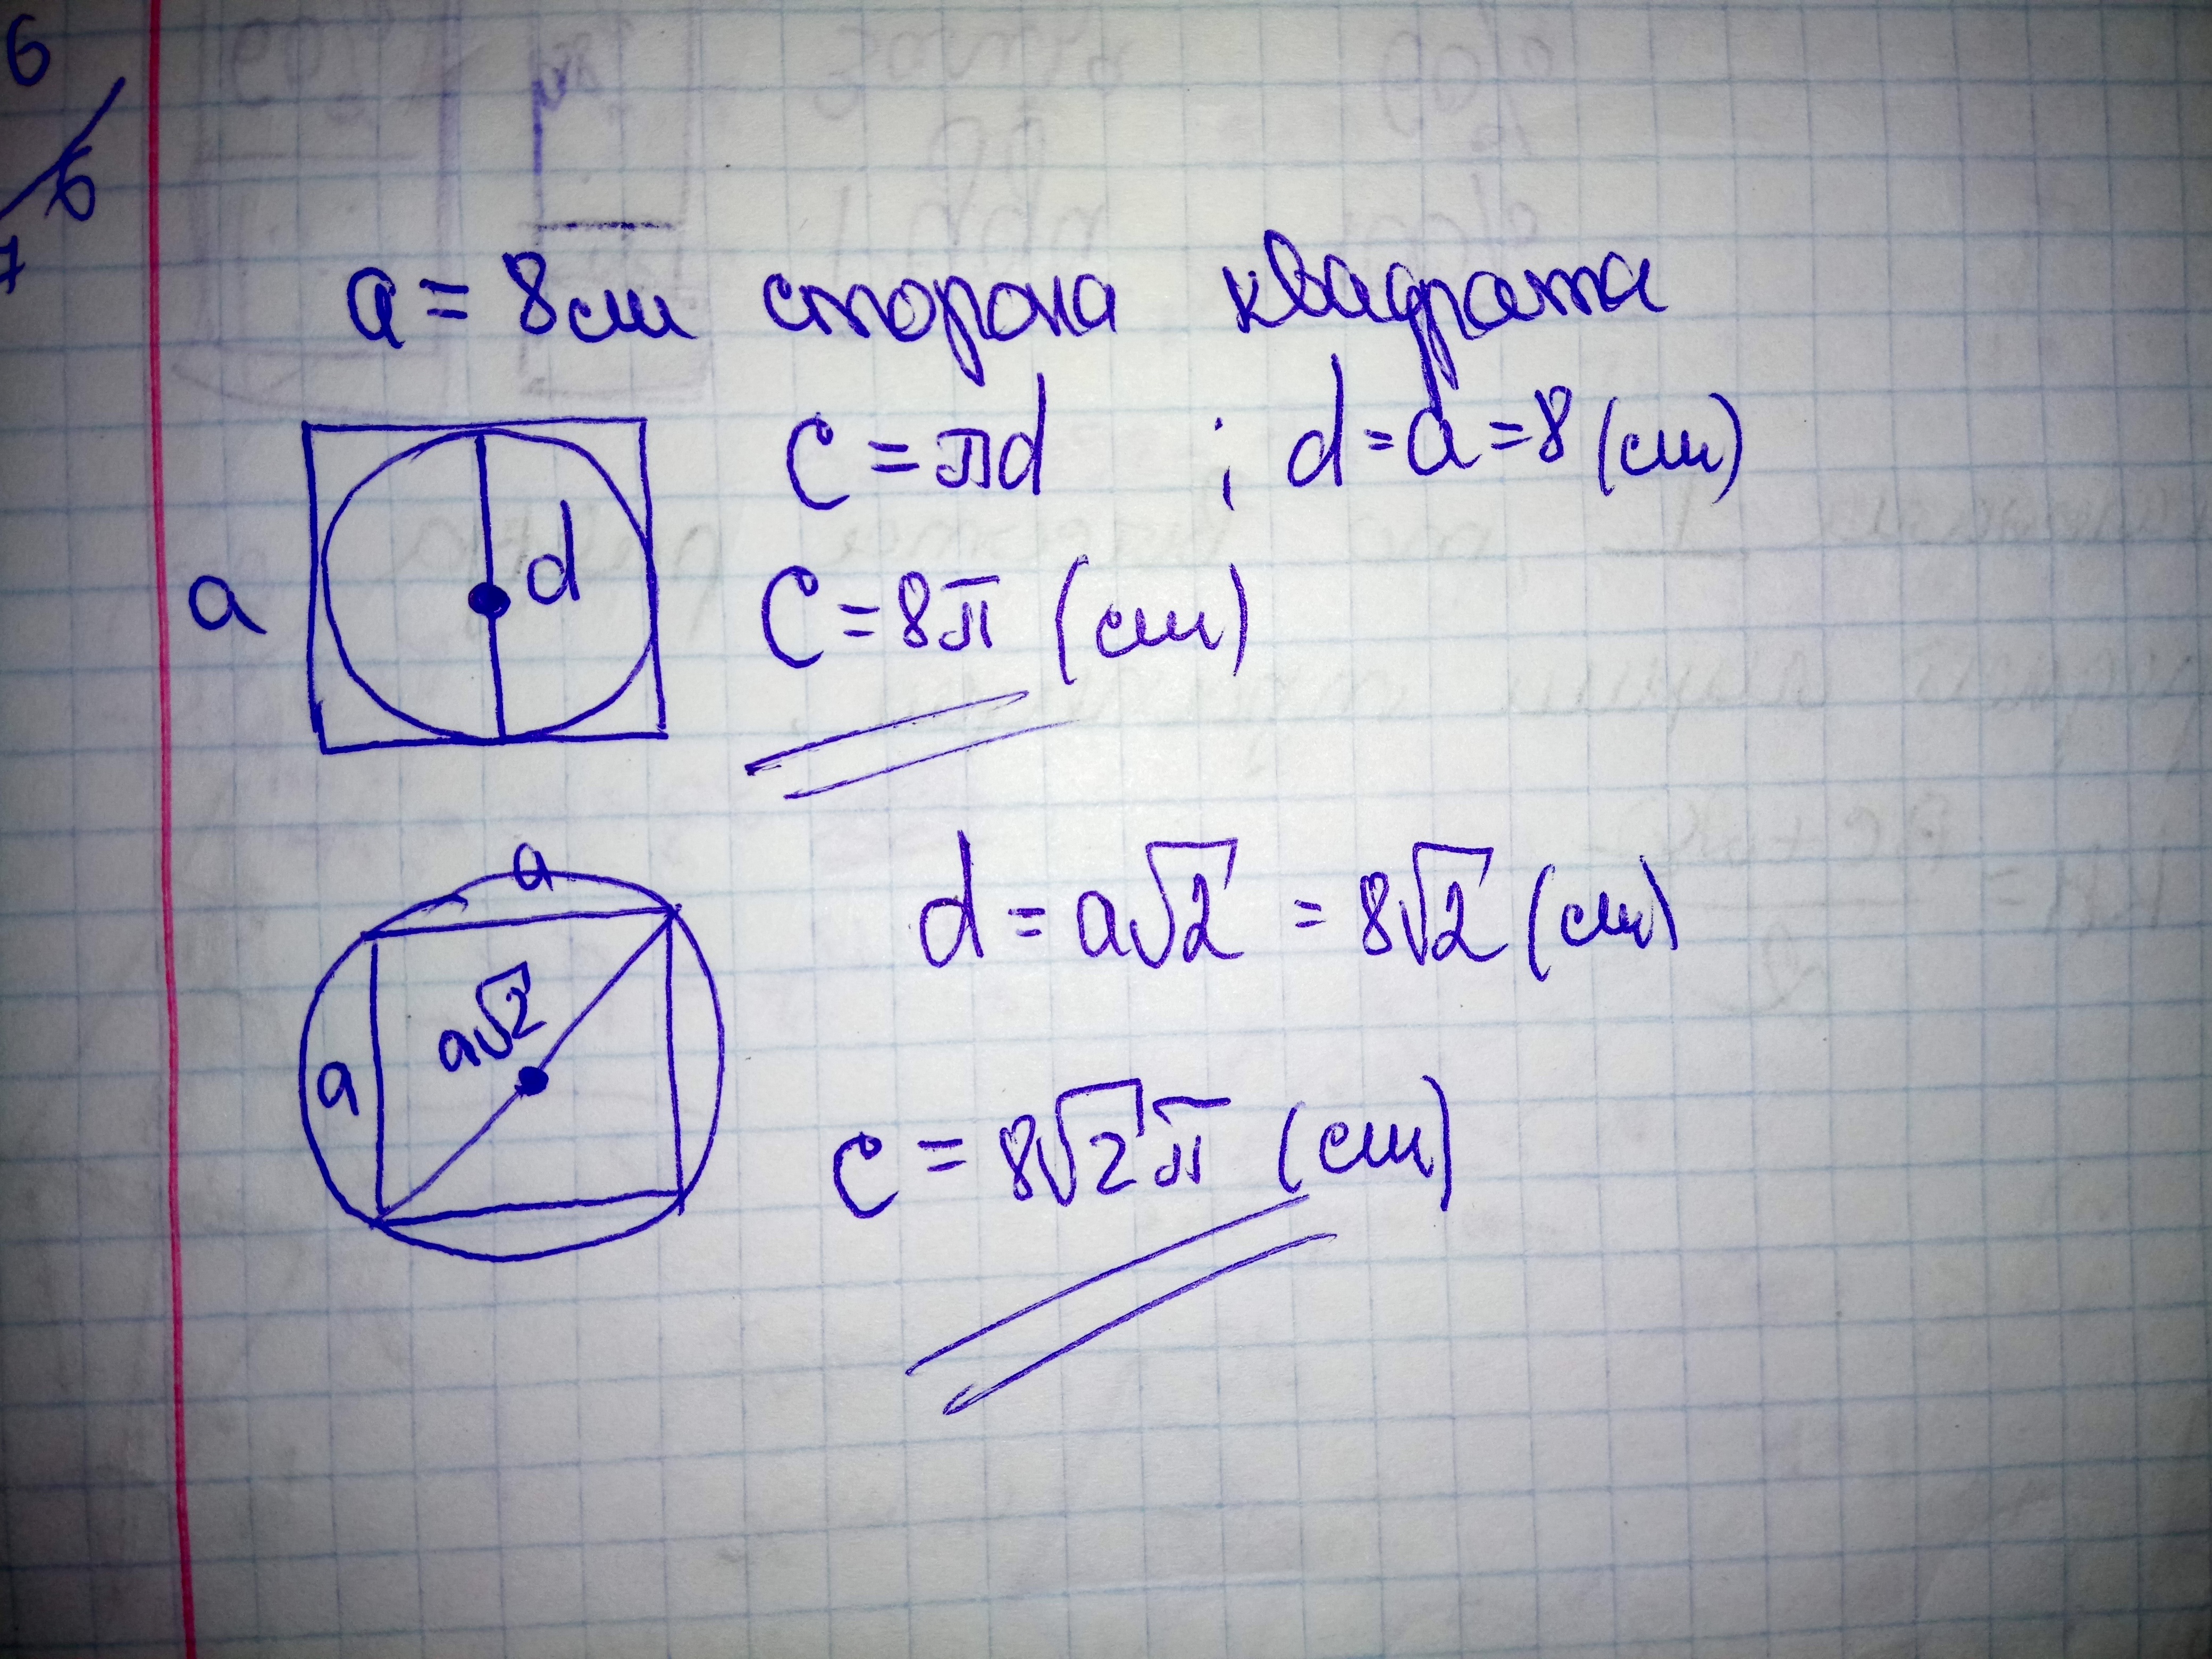 6
6
7
a = 8см сторона квадрата
C = πd ; d = a = 8 (см)
a
d
C = 8π (см)
a
d = a√2 = 8√2 (см)
a√2
a
C = 8√2 π (см)